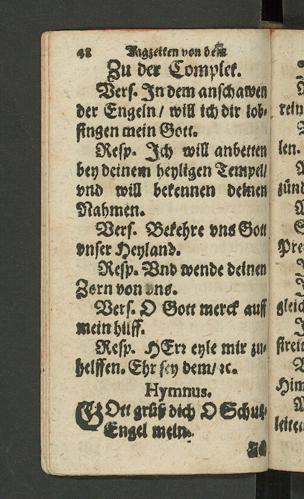 48 Tagzeiten von dem
Zu der Complet.
Vers. In dem anschawen
der Engeln / will ich dir lob-
singen mein Gott.
Resp. Ich will anbetten
bey deinem heyligen Tempel/
vnd will bekennen deinen
Nahmen.
Vers. Bekehre vns Gott
vnser Heyland.
Resp. Vnd wende deinen
Zorn von vns.
Vers. O Gott merck auff
mein hilff.
Resp. HErr eyle mir zu-
helffen. Ehr sey dem/ ꝛc.
Hymnus.
GOtt grüß dich O Schutz-
Engel mein.